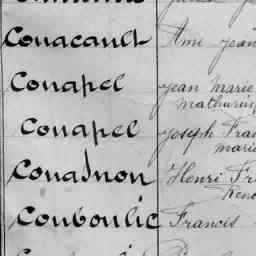 Couacault Ami Jean
Couapel Jean Marie
Mathurin
Couapel Joseph Fra
Marie
Couadnon Henri Fr
René
Couboulic Francis